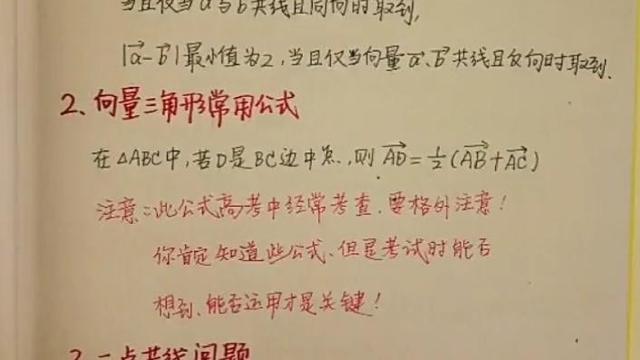 当且仅当a与b共线且同向时取到,
|a⃗-b⃗|最小值为2,当且仅当向量a⃗、b⃗共线且反向时取到.
2、向量三角形常用公式
在△ABC中,若D是BC边中点,则AD⃗=½(AB⃗+AC⃗)
注意:此公式高考中经常考查,要格外注意!
你肯定知道这些公式、但是考试时能否
想到、能否运用才是关键!
3、三点共线问题